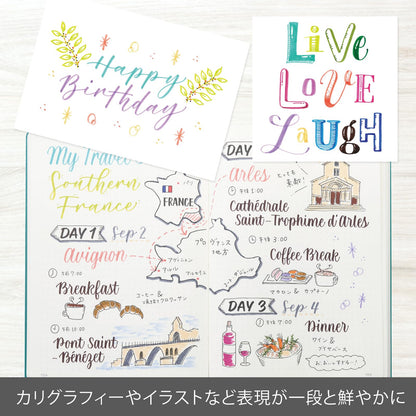 Happy
Birthday
LiVe
LOVE
LaugH
My Travel
Southern
France
FRANCE
DAY 1 Sep 2
Avignon
午前 7:00
Breakfast
コーヒー &
午前 10:00
Pont Saint
-Bénézet
プロヴァンス
地方
アヴィニョン
アルル
マルセイユ
DAY
Arles
とっても
素敵!
午後 1:00
Cathédrale
Saint-Trophime d'Arles
午後 3:00
Coffee Break
マカロン & カプチーノ
DAY 3 Sep 4
午後 7:00
Dinner
ワイン &
ブイヤベース
カリグラフィーやイラストなど表現が一段と鮮やかに